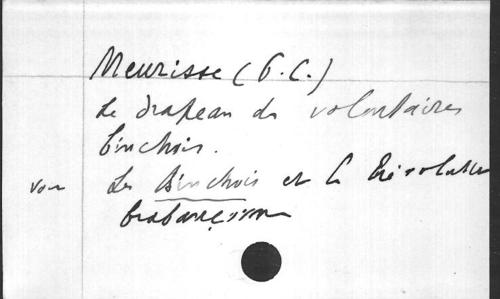 Meurisse (G. C.)
Le drapeau des volontaires
binchois.
voir Les Binchois et la Révolution
brabançonne